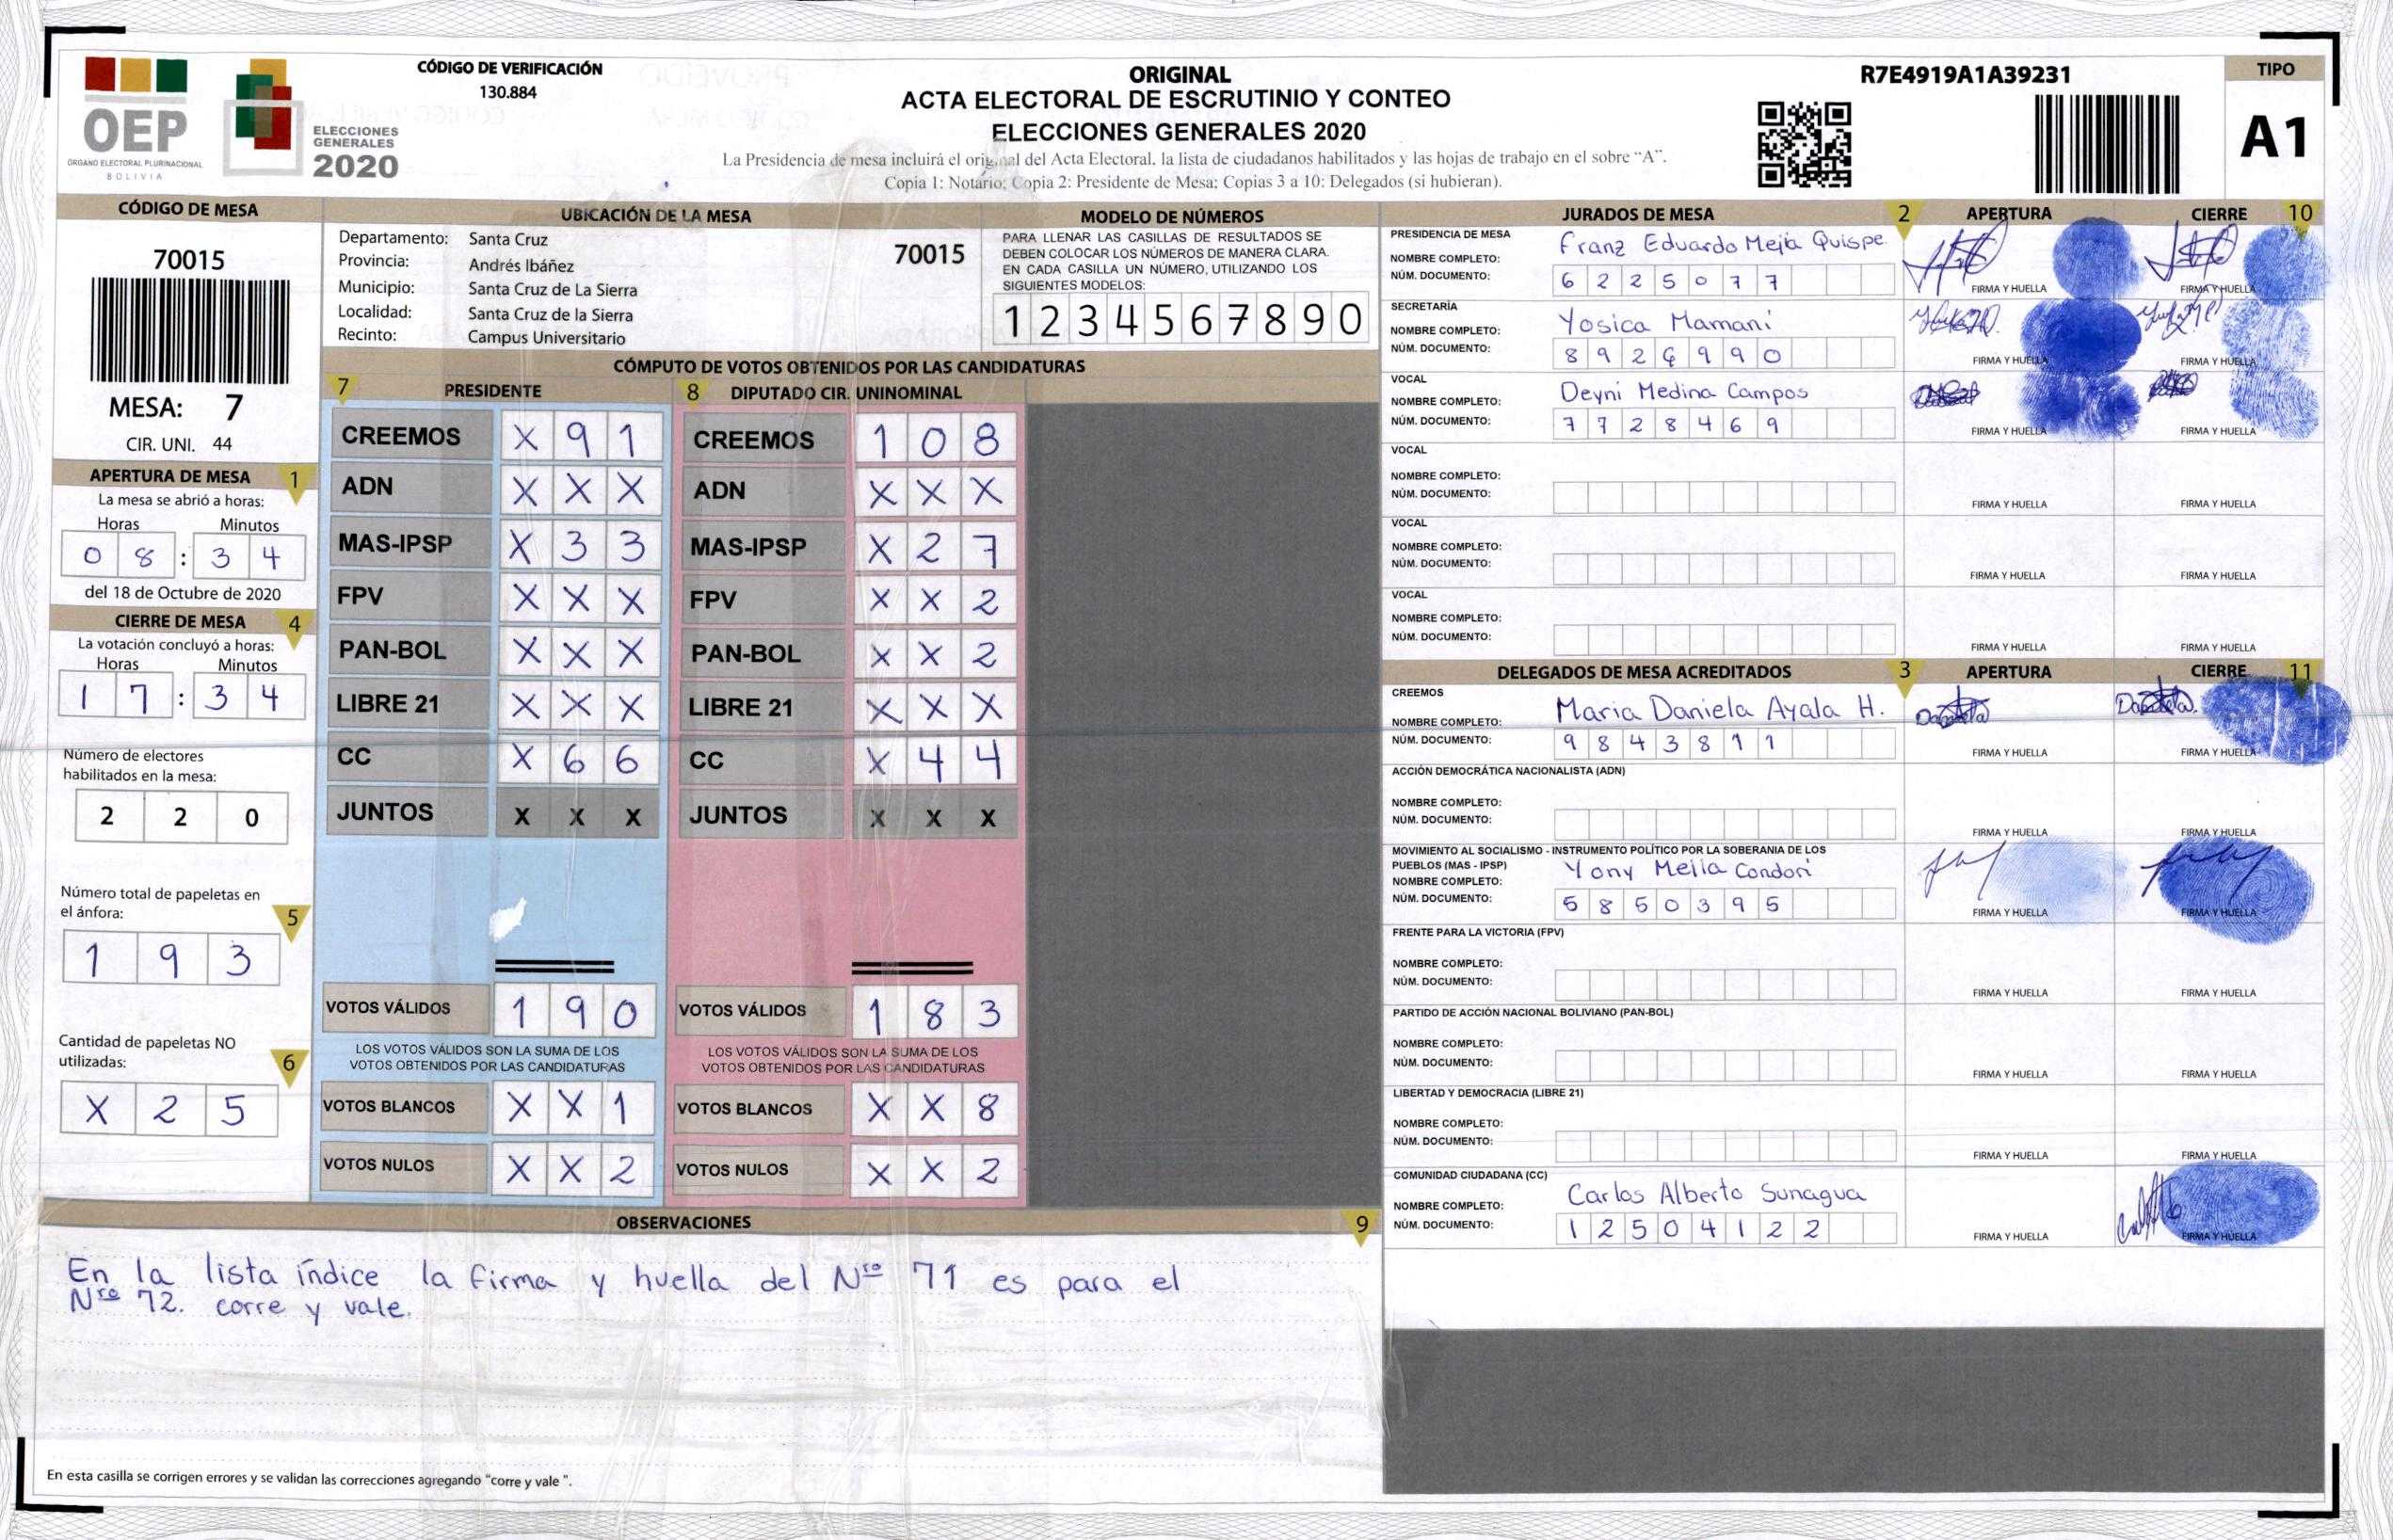 OEP
ÓRGANO ELECTORAL PLURINACIONAL
BOLIVIA
ELECCIONES
GENERALES
2020
CÓDIGO DE VERIFICACIÓN
130.884
ORIGINAL
ACTA ELECTORAL DE ESCRUTINIO Y CONTEO
ELECCIONES GENERALES 2020
La Presidencia de mesa incluirá el original del Acta Electoral, la lista de ciudadanos habilitados y las hojas de trabajo en el sobre "A".
Copia 1: Notario; Copia 2: Presidente de Mesa; Copias 3 a 10: Delegados (si hubieran).
R7E4919A1A39231
TIPO
A1
CÓDIGO DE MESA
70015
MESA: 7
CIR. UNI. 44
APERTURA DE MESA 1
La mesa se abrió a horas:
Horas Minutos
0 8 : 3 4
del 18 de Octubre de 2020
CIERRE DE MESA 4
La votación concluyó a horas:
Horas Minutos
1 7 : 3 4
Número de electores
habilitados en la mesa:
2 2 0
Número total de papeletas en
el ánfora: 5
1 9 3
Cantidad de papeletas NO
utilizadas: 6
X 2 5
UBICACIÓN DE LA MESA
Departamento: Santa Cruz 70015
Provincia: Andrés Ibáñez
Municipio: Santa Cruz de La Sierra
Localidad: Santa Cruz de la Sierra
Recinto: Campus Universitario
MODELO DE NÚMEROS
PARA LLENAR LAS CASILLAS DE RESULTADOS SE
DEBEN COLOCAR LOS NÚMEROS DE MANERA CLARA.
EN CADA CASILLA UN NÚMERO, UTILIZANDO LOS
SIGUIENTES MODELOS:
1 2 3 4 5 6 7 8 9 0
CÓMPUTO DE VOTOS OBTENIDOS POR LAS CANDIDATURAS
7 PRESIDENTE
CREEMOS X 9 1
ADN X X X
MAS-IPSP X 3 3
FPV X X X
PAN-BOL X X X
LIBRE 21 X X X
CC X 6 6
JUNTOS X X X
VOTOS VÁLIDOS 1 9 0
LOS VOTOS VÁLIDOS SON LA SUMA DE LOS
VOTOS OBTENIDOS POR LAS CANDIDATURAS
VOTOS BLANCOS X X 1
VOTOS NULOS X X 2
8 DIPUTADO CIR. UNINOMINAL
CREEMOS 1 0 8
ADN X X X
MAS-IPSP X 2 7
FPV X X 2
PAN-BOL X X 2
LIBRE 21 X X X
CC X 4 4
JUNTOS X X X
VOTOS VÁLIDOS 1 8 3
LOS VOTOS VÁLIDOS SON LA SUMA DE LOS
VOTOS OBTENIDOS POR LAS CANDIDATURAS
VOTOS BLANCOS X X 8
VOTOS NULOS X X 2
OBSERVACIONES 9
En la lista índice la firma y huella del Nro 71 es para el
Nro 72. corre y vale.
En esta casilla se corrigen errores y se validan las correcciones agregando "corre y vale ".
JURADOS DE MESA 2 APERTURA CIERRE 10
PRESIDENCIA DE MESA
NOMBRE COMPLETO: Franz Eduardo Mejía Quispe
NÚM. DOCUMENTO: 6 2 2 5 0 7 7
FIRMA Y HUELLA FIRMA Y HUELLA
SECRETARÍA
NOMBRE COMPLETO: Yosica Mamani
NÚM. DOCUMENTO: 8 9 2 6 9 9 0
FIRMA Y HUELLA FIRMA Y HUELLA
VOCAL
NOMBRE COMPLETO: Deyni Medina Campos
NÚM. DOCUMENTO: 7 7 2 8 4 6 9
FIRMA Y HUELLA FIRMA Y HUELLA
VOCAL
NOMBRE COMPLETO:
NÚM. DOCUMENTO:
FIRMA Y HUELLA FIRMA Y HUELLA
VOCAL
NOMBRE COMPLETO:
NÚM. DOCUMENTO:
FIRMA Y HUELLA FIRMA Y HUELLA
VOCAL
NOMBRE COMPLETO:
NÚM. DOCUMENTO:
FIRMA Y HUELLA FIRMA Y HUELLA
DELEGADOS DE MESA ACREDITADOS 3 APERTURA CIERRE 11
CREEMOS
NOMBRE COMPLETO: Maria Daniela Ayala H.
NÚM. DOCUMENTO: 9 8 4 3 8 1 1
FIRMA Y HUELLA FIRMA Y HUELLA
ACCIÓN DEMOCRÁTICA NACIONALISTA (ADN)
NOMBRE COMPLETO:
NÚM. DOCUMENTO:
FIRMA Y HUELLA FIRMA Y HUELLA
MOVIMIENTO AL SOCIALISMO - INSTRUMENTO POLÍTICO POR LA SOBERANIA DE LOS
PUEBLOS (MAS - IPSP)
NOMBRE COMPLETO: Yony Mejia Condori
NÚM. DOCUMENTO: 5 8 5 0 3 9 5
FIRMA Y HUELLA FIRMA Y HUELLA
FRENTE PARA LA VICTORIA (FPV)
NOMBRE COMPLETO:
NÚM. DOCUMENTO:
FIRMA Y HUELLA FIRMA Y HUELLA
PARTIDO DE ACCIÓN NACIONAL BOLIVIANO (PAN-BOL)
NOMBRE COMPLETO:
NÚM. DOCUMENTO:
FIRMA Y HUELLA FIRMA Y HUELLA
LIBERTAD Y DEMOCRACIA (LIBRE 21)
NOMBRE COMPLETO:
NÚM. DOCUMENTO:
FIRMA Y HUELLA FIRMA Y HUELLA
COMUNIDAD CIUDADANA (CC)
NOMBRE COMPLETO: Carlos Alberto Sunagua
NÚM. DOCUMENTO: 1 2 5 0 4 1 2 2
FIRMA Y HUELLA FIRMA Y HUELLA